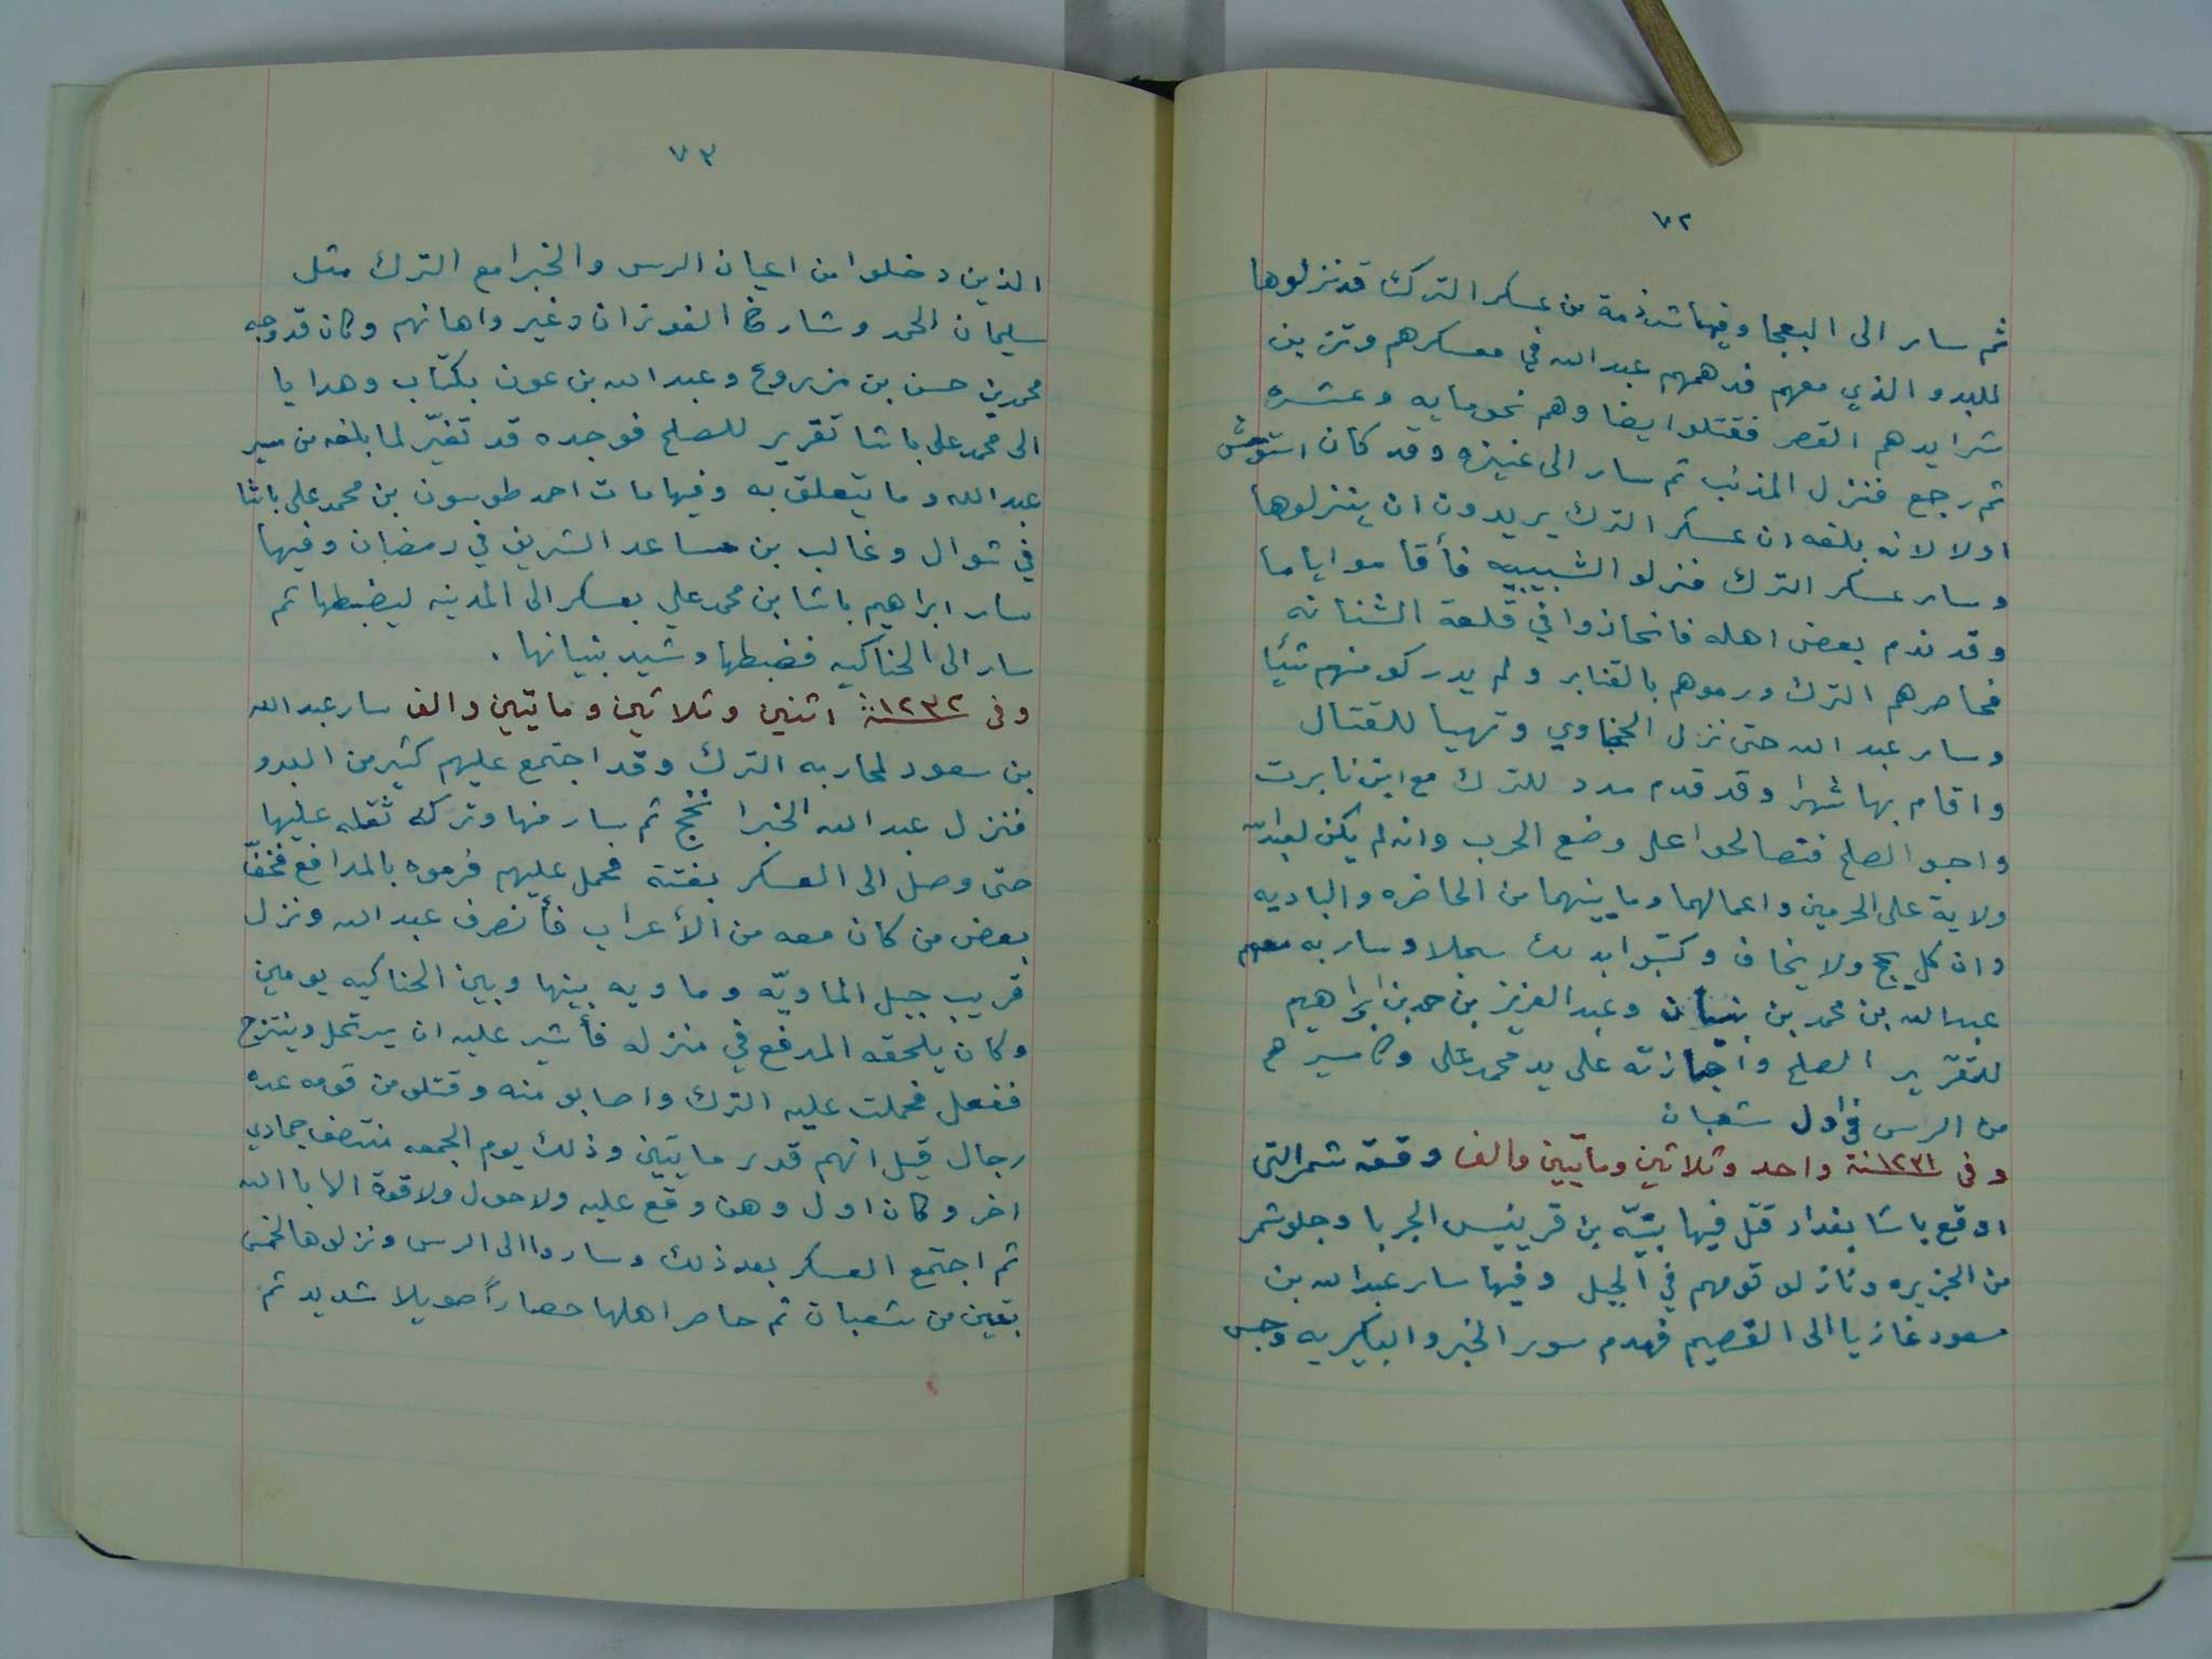 ٧٢
ثم سار الى البعجا وفيها شرذمة من عسكر الترك قد نزلوها
للبدو الذي معهم فدهمهم عبدالله في معسكرهم وتزبن
شرايدهم القصر فقتلوا يضا وهم نحو مايه وعشره
ثم رجع فنزل المذنب ثم سار الى عنيزه وقد كان استوحش
اولا لانه بلغه ان عسكر الترك يريدون ان ينزلوها
وسار عسكر الترك فنزلو الشبيبيه فأقاموا اياما
وقد ندم بعض اهله فانحازوا في قلعة الشنانه
فحاصرهم الترك ورموهم بالقنابر ولم يدركو منهم شيًا
وسار عبد الله حتى نزل الحجناوي وتهيا للقتال
واقام بها شهرا وقد قدم مدد للترك مع ابن نابرت
واحبوا الصلح فتصالحوا على وضع الحرب وانه لم يكن لعبدالله
ولاية على الحرمين واعمالهما وما بينهما من الحاضره والباديه
وان كل يحج ولا يخاف وكتبوا بذلك سجلا وسار به معهم
عبدالله بن محمد بن بنيان وعبد العزيز بن حمد بن ابراهيم
لتقرير الصلح واجازته على يد محمد على وكا مسيرهم
من الرس في اول شعبان
وفى سنة ١٢٣١ واحد وثلاثين ومأتيين والف وقعة شمر التى
اوقع باشا بغداد قتل فيها بنيّه بن قرينيس الجربا وجلو شمر
من الجزيره ونازلو قومهم في الجبل وفيها سار عبد الله بن
سعود غازيا الى القصيم فهدم سور الخبر والبكيريه وحبس
٧٣
الذين دخلوا من اعيان الرس والخبرا مع الترك مثل
سليمان الحمد وشارخ الفوزان وغير واهانهم وكان قد وجه
محمد بن حسن بن مزروع وعبد الله بن عون بكتاب وهدايا
الى محمد على باشا تقرير للصلح فوجده قد تغيّر لما بلغه من سير
عبد الله وما يتعلق به وفيها مات احمد طوسون بن محمد على باشا
في شوال وغالب بن مساعد الشريف في رمضان وفيها
سار ابراهيم باشا بن محمد علي بعسكر الى المدينه ليضبطها ثم
سار الى الحناكيه فضبطها وشيد بنيانها .
وفى سنة ١٢٣٢ اثنين وثلاثين ومايتين والف سار عبدالله
بن سعود لمحاربه الترك وقد اجتمع عليهم كثير من البدو
فنزل عبد الله الخبرا نجخ ثم سار منها وترك ثقله عليها
حتى وصل الى العسكر بغتته فحمل عليهم فرموه بالمدافع فخفّ
بعض من كان معه من الأعراب فأنصرف عبد الله ونزل
قريب جبل الماويّه وماويه بينها وبين الحناكيه يومين
وكان يلحقه المدفع في منزله فأشير عليه ان يرتحل وينتزح
ففعل فحملت عليه الترك واصابو منه وقتلو من قومه عده
رجال قيل انهم قدر مايتين وذلك يوم الجمعه منتصف جمادي
اخر وكان اول وهن وقع عليه ولا حول ولا قوة الا باالله
ثم اجتمع العسكر بعد ذلك وساروا الى الرس ونزلوها لخمس
بقين من شعبان ثم حاصر اهلها حصاراً طويلا شديد ثم